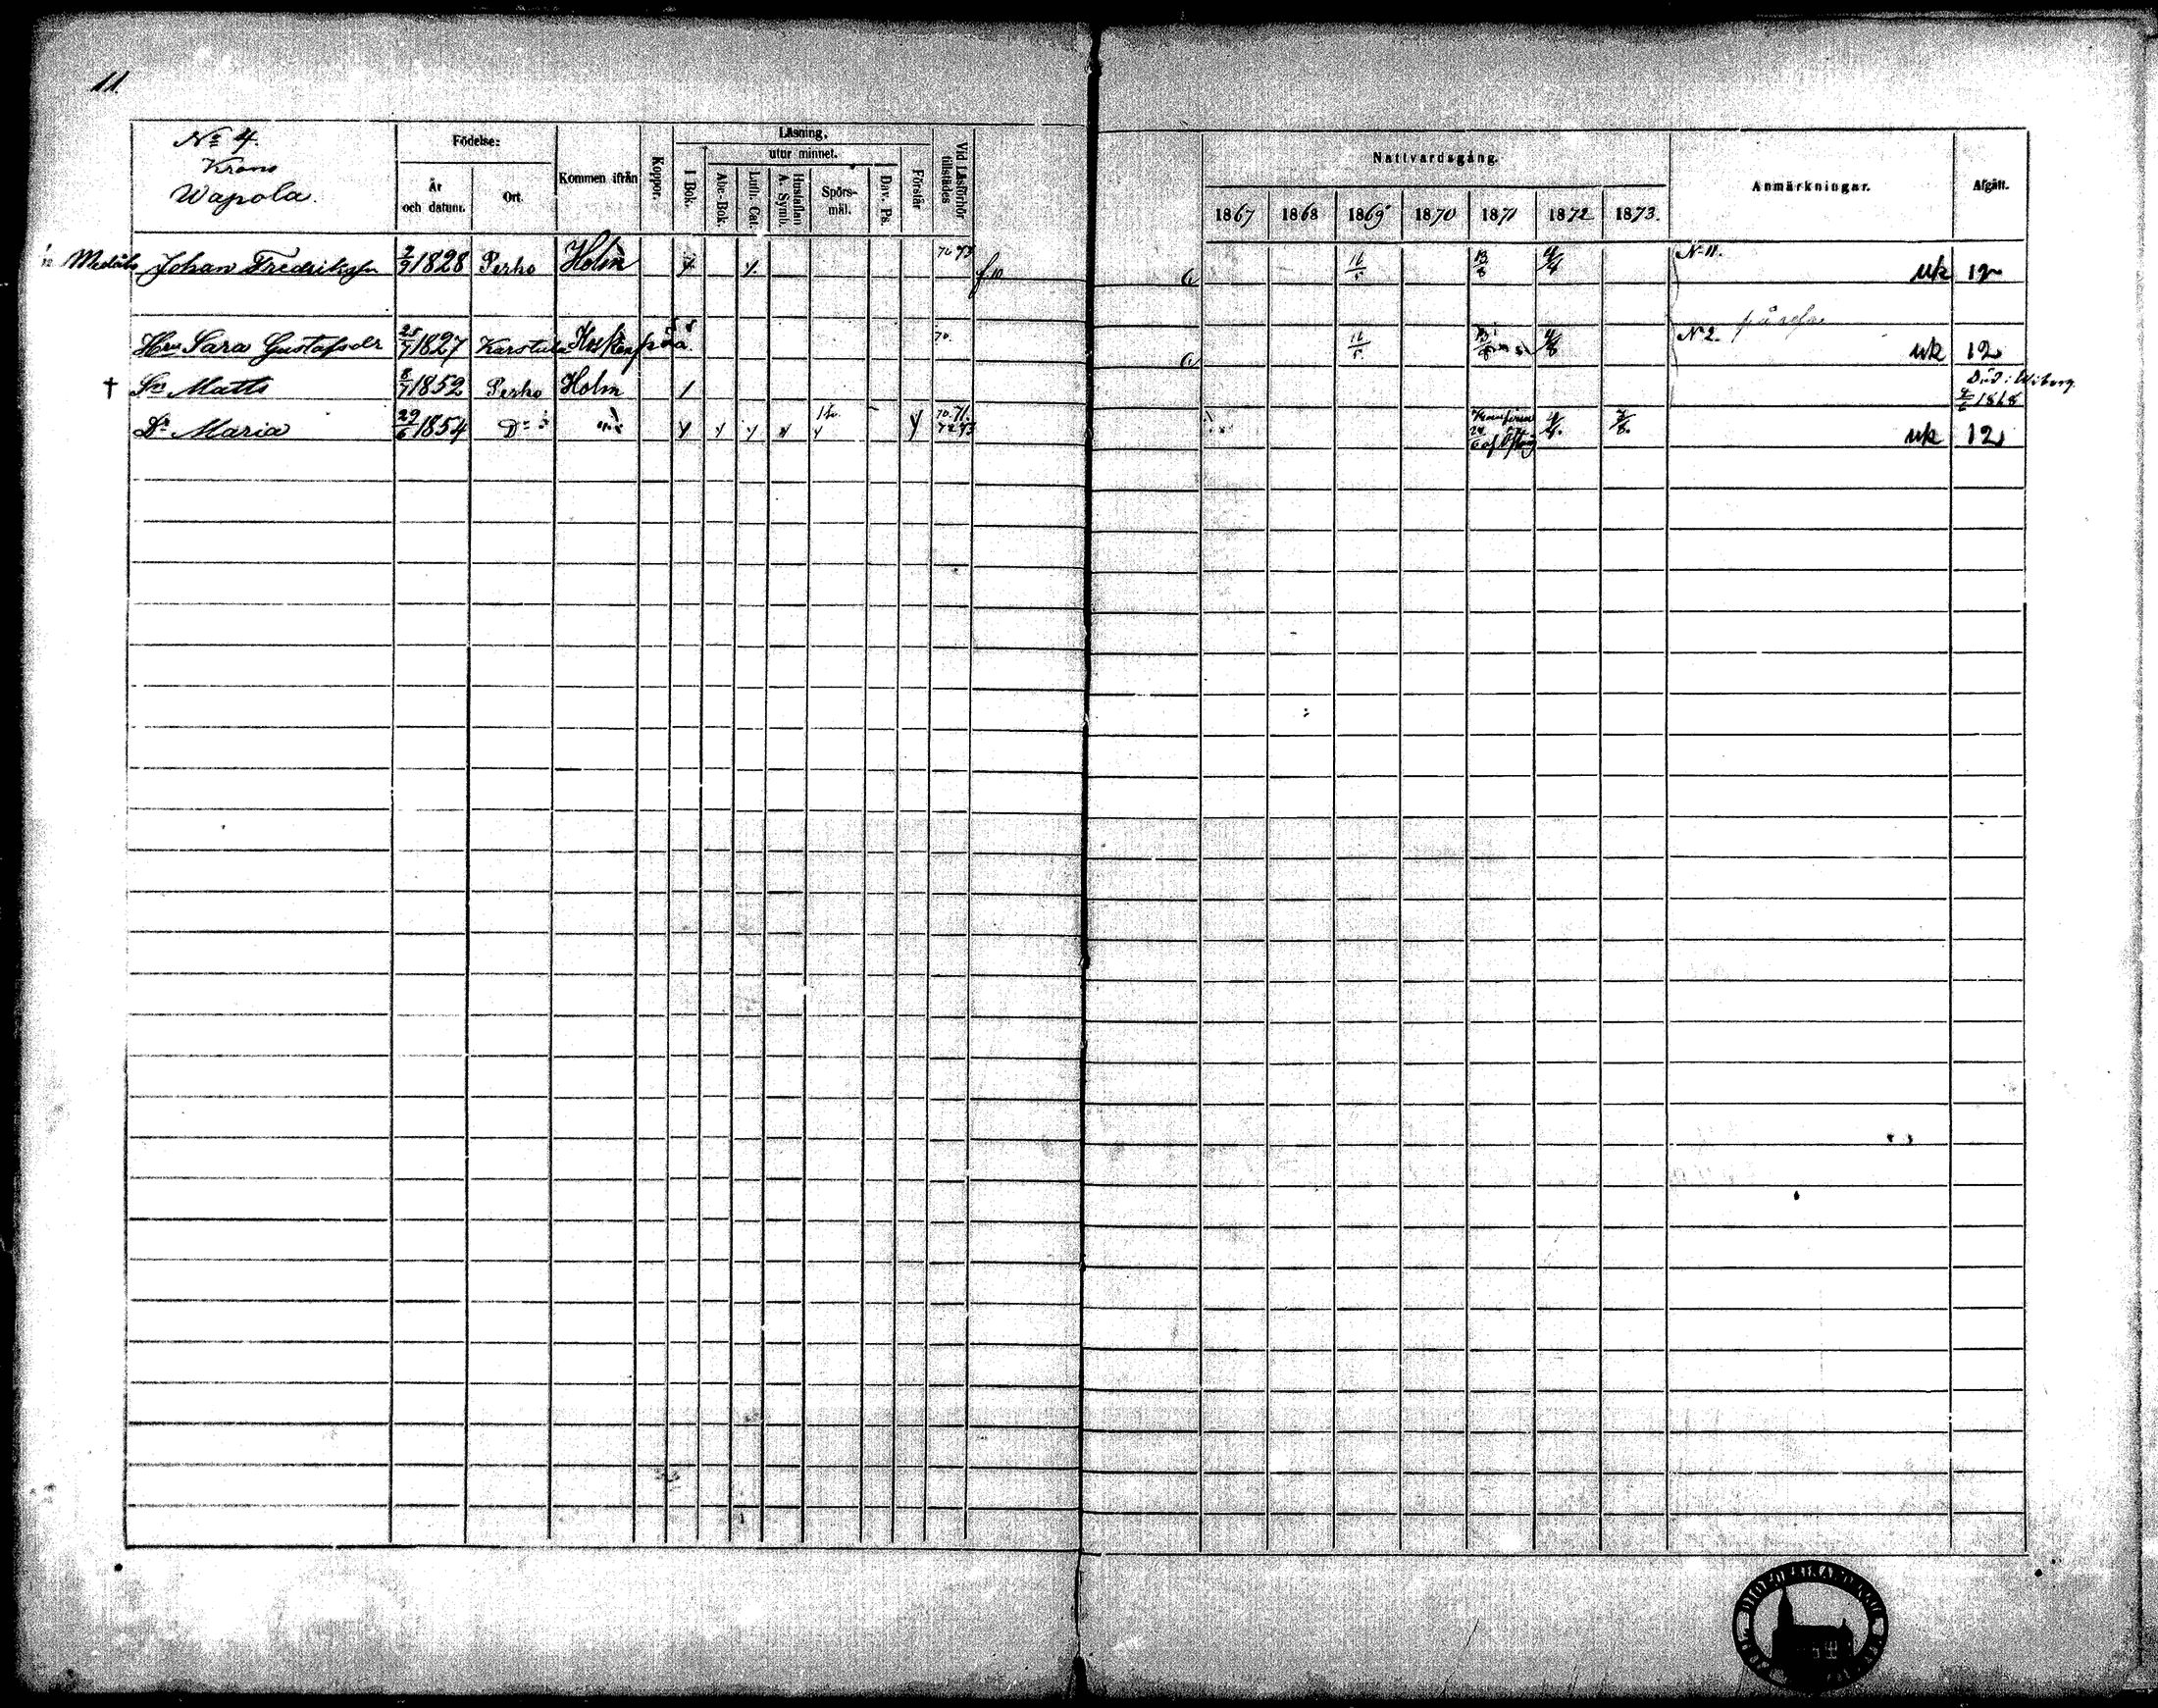 11.
No 4.
Krono
Wapola.
Födelse:
År och datum.
Ort.
Kommen ifrån
Koppor.
Läsning,
utur minnet.
I Bok.
Abc-Bok.
Luth. Cat.
Hustaflan A. Symb.
Spörsmål.
Dav. Ps.
Förstår
Vid Läsförhör tillstädes
Nattvardsgång.
1867 1868 1869 1870 1871 1872 1873.
Anmärkningar.
Afgått.
Johan Fredriksson 2/9 1828 Perho Holm 70 73 f. 10 16/5 13/8 No 11. uk 12
Hru Sara Gustafsdr 25/7 1827 Karstula 70. 16/5 No 2. uk 12
† Sn Matts 8/7 1852 Perho Holm Död i Wiborg 1868
Dr Maria 29/6 1854 Do 70. 71. 72 73 uk 12